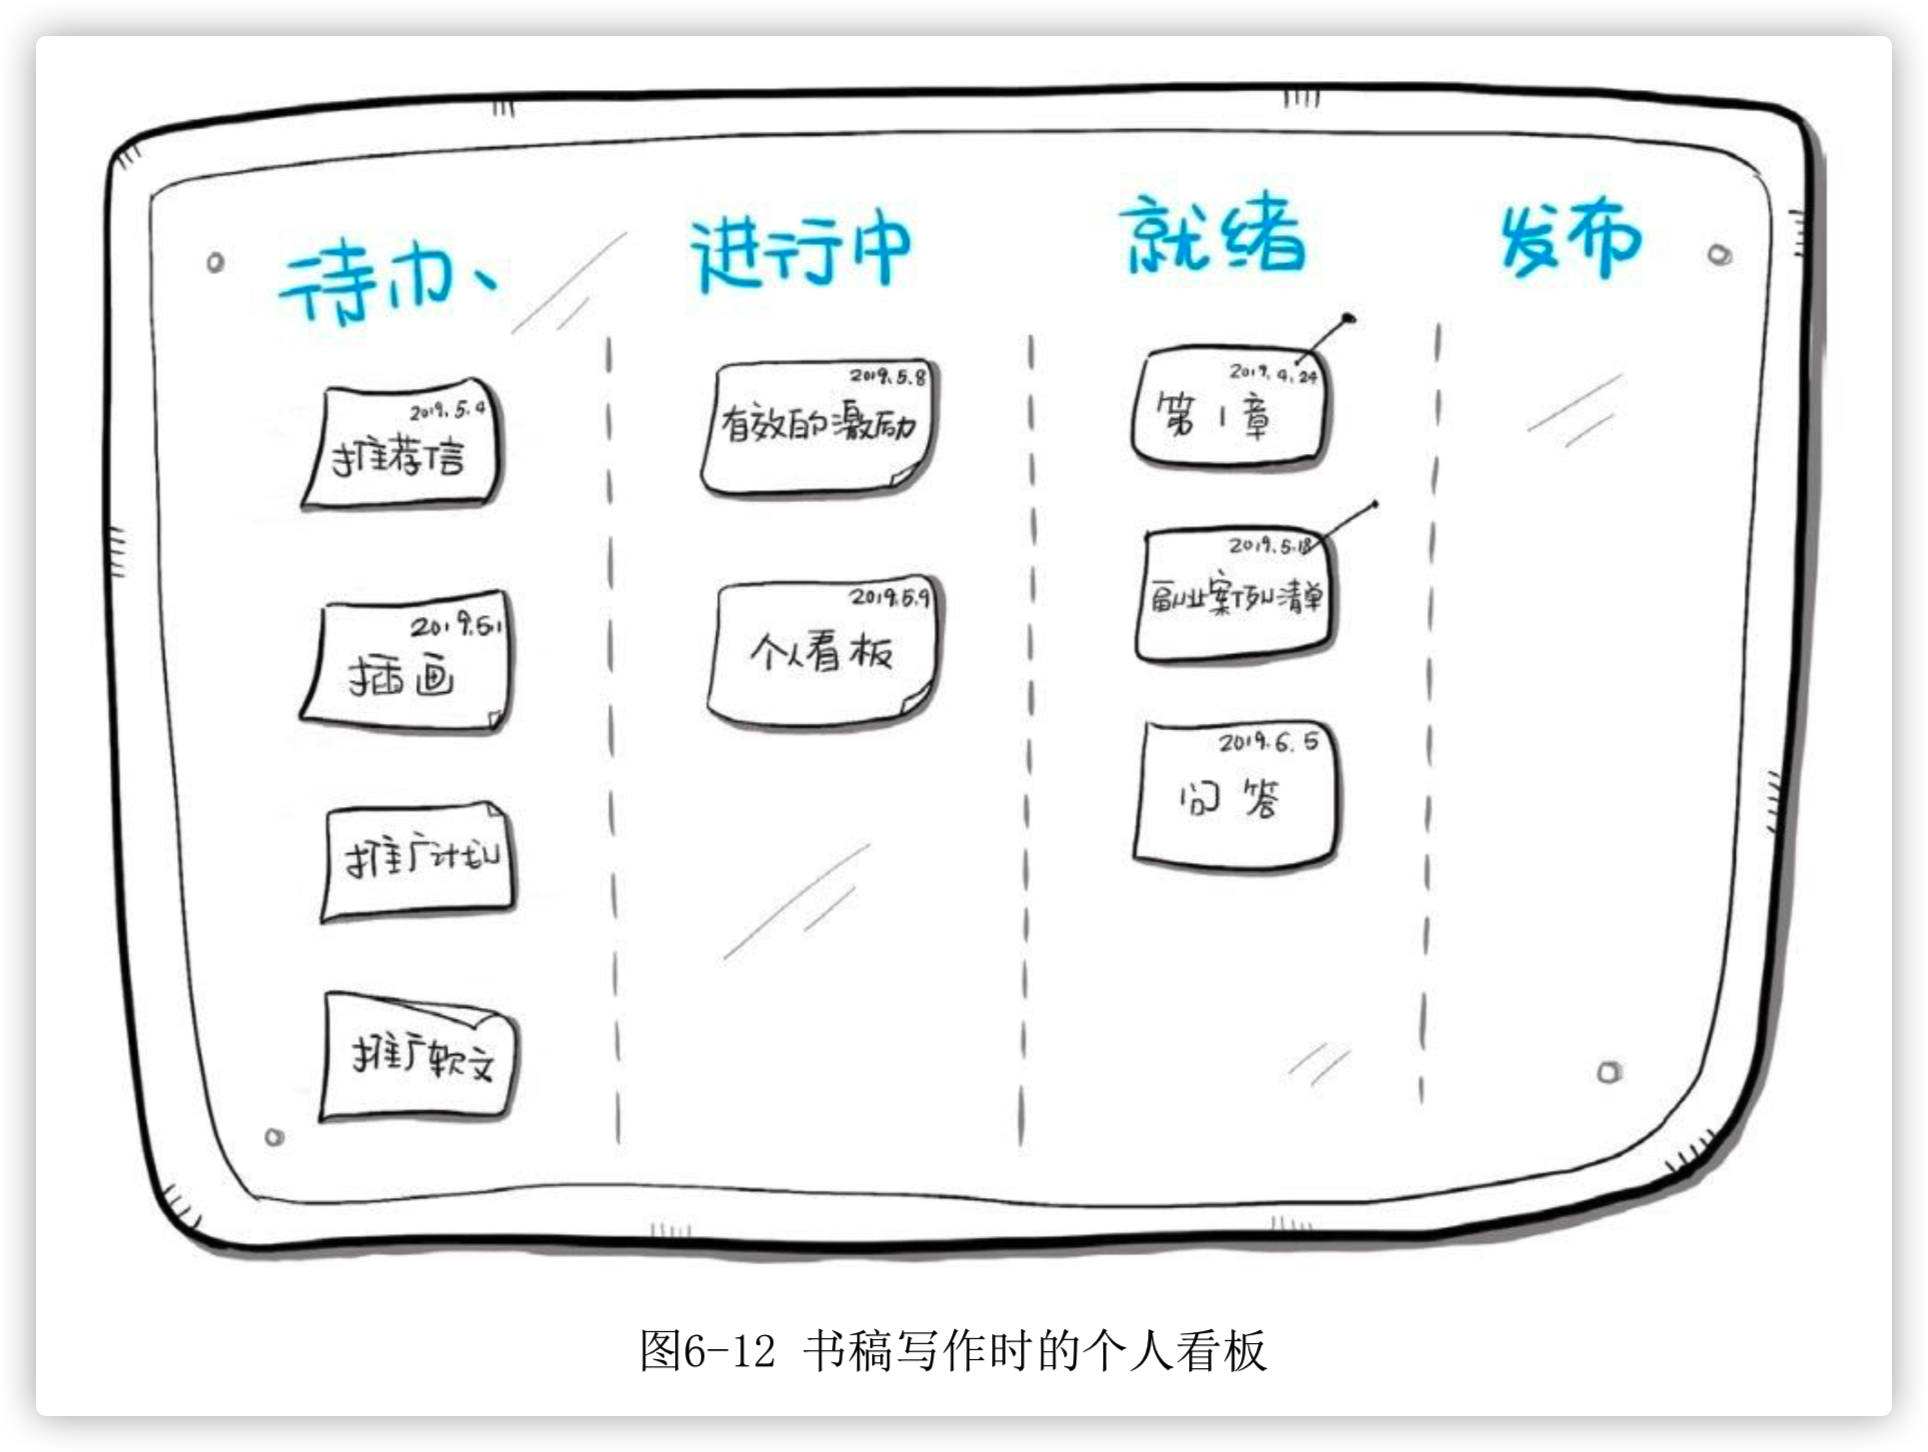 待办、
进行中
就绪
发布
2019.5.4
推荐信
2019.5.1
插画
推广计划
推广软文
2019.5.8
有效的激励
2019.5.9
个人看板
2019.4.24
第1章
2019.5.18
副业案例清单
2019.6.5
问答
图6-12 书稿写作时的个人看板